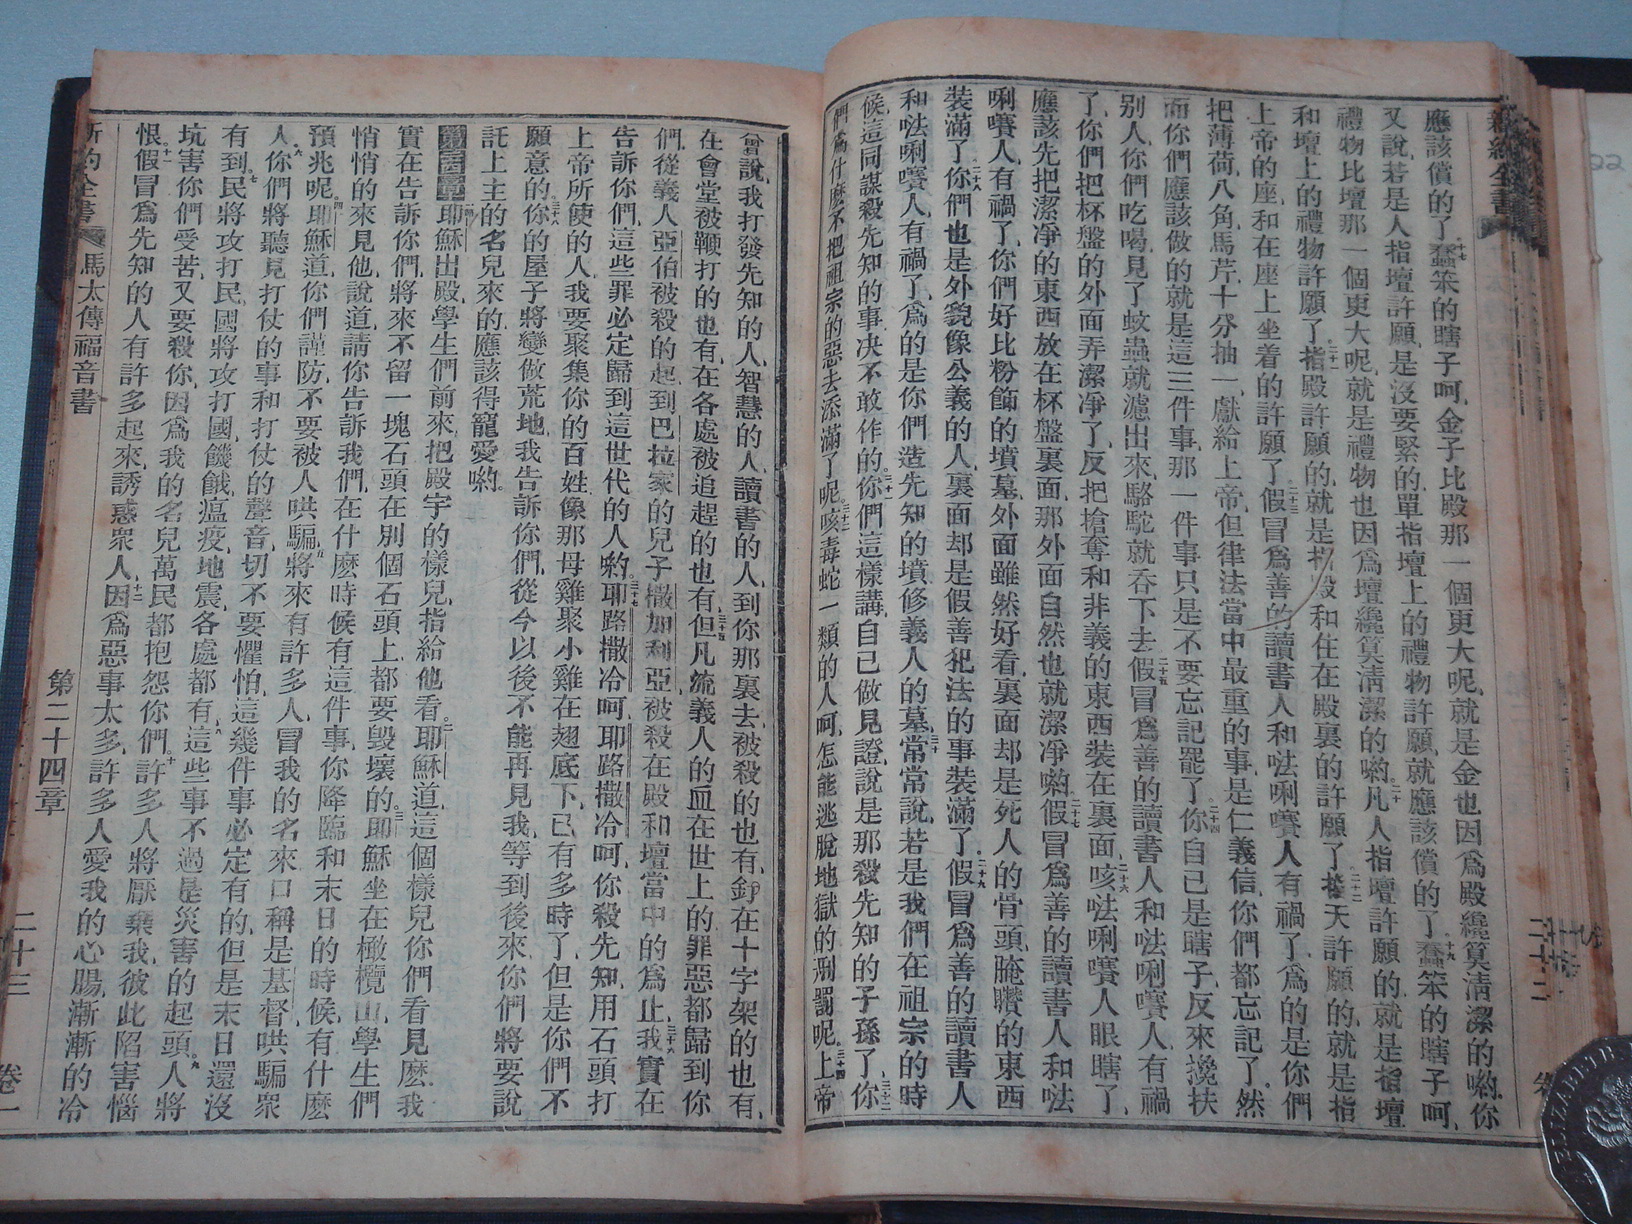 應該償的了十七蠢笨的瞎子呵金子比殿那一個更大呢就是金也因爲殿纔算淸潔的喲你
又說若是人指壇許願是沒要緊的單指壇上的禮物許願就應該償的了十九蠢笨的瞎子呵
禮物比壇那一個更大呢就是禮物也因爲壇纔算淸潔的喲二十凡人指壇許願的就是指壇
和壇上的禮物許願了二十一指殿許願的就是指殿和住在殿裏的許願了二十二指天許願的就是指
上帝的座和在座上坐着的許願了二十三假冒爲善的讀書人和呿唎嚽人有禍了爲的是你們
把薄荷八角馬芹十分抽一獻給上帝但律法當中最重的事是仁義信你們都忘記了然
而你們應該做的就是這三件事那一件事只是不要忘記罷了二十四你自己是瞎子反來攙扶
别人你們吃喝見了蚊蟲就濾出來駱駝就吞下去二十五假冒爲善的讀書人和呿唎嚽人有禍
了你們把杯盤的外面弄潔凈了反把搶奪和非義的東西裝在裏面二十六咳呿唎嚽人眼瞎了
應該先把潔凈的東西放在杯盤裏面那外面自然也就潔凈喲二十七假冒爲善的讀書人和呿
唎嚽人有禍了你們好比粉飾的墳墓外面雖然好看裏面却是死人的骨頭腌臢的東西
裝滿了二十八你們也是外貌像公義的人裏面却是假善犯法的事裝滿了二十九假冒爲善的讀書人
和呿唎嚽人有禍了爲的是你們造先知的墳修義人的墓三十常常說若是我們在祖宗的時
候這同謀殺先知的事决不敢作的三十一你們這樣講自己做見證說是那殺先知的子孫了三十二你
們爲什麽不把祖宗的惡去添滿了呢三十三咳毒蛇一類的人呵怎能逃脫地獄的刑罰呢三十四上帝
曾說我打發先知的人智慧的人讀書的人到你那裏去被殺的也有釘在十字架的也有
在會堂被鞭打的也有在各處被追趕的也有三十五但凡流義人的血在世上的罪惡都歸到你
們從義人亞伯被殺的起到巴拉家的兒子撒加利亞被殺在殿和壇當中的爲止三十六我實在
告訴你們這些罪必定歸到這世代的人喲三十七耶路撒冷呵耶路撒冷呵你殺先知用石頭打
上帝所使的人我要聚集你的百姓像那母雞聚小雞在翅底下已有多時了但是你們不
願意的三十八你的屋子將變做荒地我告訴你們從今以後不能再見我等到後來你們將要說
託上主的名兒來的應該得寵愛喲
第二十四章一耶穌出殿學生們前來把殿宇的樣兒指給他看二耶穌道這個樣兒你們看見麽我
實在告訴你們將來不留一塊石頭在別個石頭上都要毀壞的三耶穌坐在橄欖山學生們
悄悄的來見他說道請你告訴我們在什麽時候有這件事你降臨和末日的時候有什麽
預兆呢四耶穌道你們謹防不要被人哄騙五將來有許多人冒我的名來口稱是基督哄騙衆
人六你們將聽見打仗的事和打仗的聲音切不要懼怕這幾件事必定有的但是末日還沒
有到七民將攻打民國將攻打國饑餓瘟疫地震各處都有八這些事不過是災害的起頭九人將
坑害你們受苦又要殺你因爲我的名兒萬民都抱怨你們十許多人將厭棄我彼此陷害惱
恨十一假冒爲先知的人有許多起來誘惑衆人十二因爲惡事太多許多人愛我的心腸漸漸的冷
新約全書 馬太傳福音書 第二十四章 二十三 卷一